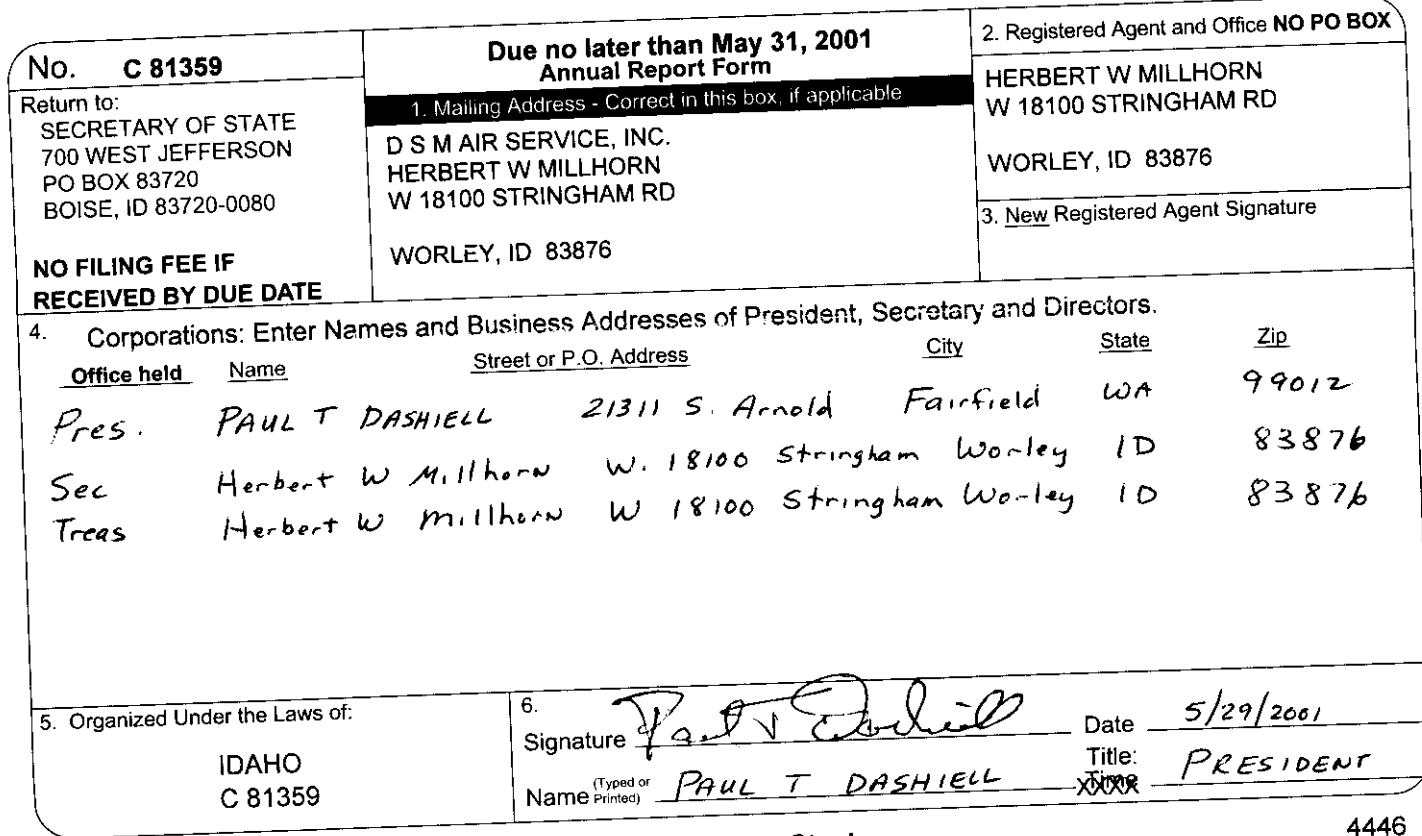 No. C 81359
Return to:
SECRETARY OF STATE
700 WEST JEFFERSON
PO BOX 83720
BOISE, ID 83720-0080
NO FILING FEE IF
RECEIVED BY DUE DATE
Due no later than May 31, 2001
Annual Report Form
1. Mailing Address - Correct in this box, if applicable
D S M AIR SERVICE, INC.
HERBERT W MILLHORN
W 18100 STRINGHAM RD
WORLEY, ID 83876
2. Registered Agent and Office NO PO BOX
HERBERT W MILLHORN
W 18100 STRINGHAM RD
WORLEY, ID 83876
3. New Registered Agent Signature
4. Corporations: Enter Names and Business Addresses of President, Secretary and Directors.
Office held Name Street or P.O. Address City State Zip
Pres. PAUL T DASHIELL 21311 S. Arnold Fairfield WA 99012
Sec Herbert W Millhorn W. 18100 Stringham Worley ID 83876
Treas Herbert W Millhorn W 18100 Stringham Worley ID 83876
5. Organized Under the Laws of:
IDAHO
C 81359
6.
Signature Paul T Dashiell Date 5/29/2001
Name (Typed or Printed) PAUL T DASHIELL Title: PRESIDENT
4446